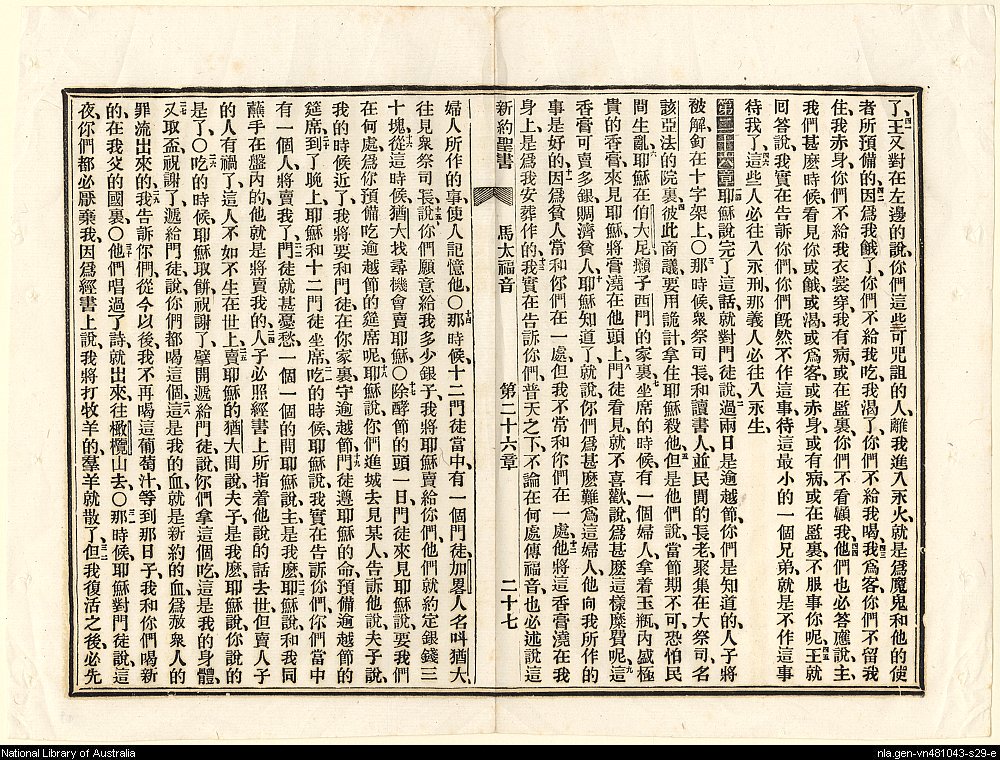 了、王又對在左邊的說、你們這些可咒詛的人、離我進入永火、就是爲魔鬼和他的使
者所預備的、因爲我餓了、你們不給我吃、我渴了、你們不給我喝、我爲客、你們不留我
住、我赤身、你們不給我衣裳穿、我有病、或在監裏、你們不看顧我、他們也必答應說、主、
我們甚麽時候看見你或餓、或渴、或爲客、或赤身、或有病、或在監裏、不服事你呢、王就
回答說、我實在告訴你們、你們旣然不作這事待這最小的一個兄弟、就是不作這事
待我了、這些人必往入永刑、那義人必往入永生、
第二十六章 耶穌說完了這話、就對門徒說、過兩日是逾越節、你們是知道的、人子將
被解、釘在十字架上、○那時候、衆祭司長和讀書人、並民間的長老、聚集在大祭司、名
該亞法的院裏、彼此商議、要用詭計拿住耶穌殺他、但是他們說、當節期不可、恐怕民
間生亂、耶穌在伯大尼、癩子西門的家裏、坐席的時候、有一個婦人、拿着玉瓶、內盛極
貴的香膏、來見耶穌、將膏澆在他頭上、門徒看見、就不喜歡、說、爲甚麽這樣糜費呢、這
香膏可賣多銀、賙濟貧人、耶穌知道了、就說、你們爲甚麽難爲這婦人、他向我所作的
事是好的、因爲貧人常和你們在一處、但我不常和你們在一處、他將這香膏澆在我
身上、是爲我安葬作的、我實在告訴你們、普天之下、不論在何處傳福音、也必述說這
新約聖書 馬太福音 第二十六章 二十七
婦人所作的事、使人記憶他、○那時候、十二門徒當中、有一個門徒、加畧人、名叫猶大、
往見衆祭司長、說、你們願意給我多少銀子、我將耶穌賣給你們、他們就約定銀錢三
十塊、從這時候、猶大找尋機會賣耶穌、○除酵節的頭一日、門徒來見耶穌說、要我們
在何處爲你預備吃逾越節的筵席呢、耶穌說、你們進城去見某人、告訴他說、夫子說、
我的時候近了、我將要和門徒在你家裏守逾越節、門徒遵耶穌的命、預備逾越節的
筵席、到了晚上、耶穌和十二門徒坐席、吃的時候、耶穌說、我實在告訴你們、你們當中
有一個人將賣我了、門徒就甚憂愁、一個一個的問耶穌說、主、是我麽、耶穌說、和我同
蘸手在盤內的、他就是將賣我的、人子必照經書上所指着他說的話去世、但賣人子
的人有禍了、這人不如不生在世上、賣耶穌的猶大問說、夫子、是我麽、耶穌說、你說的
是了、○吃的時候、耶穌取餅祝謝了、擘開遞給門徒、說、你們拿這個吃、這是我的身體、
又取盃祝謝了、遞給門徒、說、你們都喝這個、這是我的血、就是新約的血、爲赦衆人的
罪流出來的、我告訴你們、從今以後、我不再喝這葡萄汁、等到那日子、我和你們喝新
的、在我父的國裏、○他們唱過了詩、就出來往橄欖山去、○那時候耶穌對門徒說、這
夜、你們都必厭棄我、因爲經書上說、我將打牧羊的、羣羊就散了、但我復活之後、必先
National Library of Australia
nla.gen-vn481043-s29-e